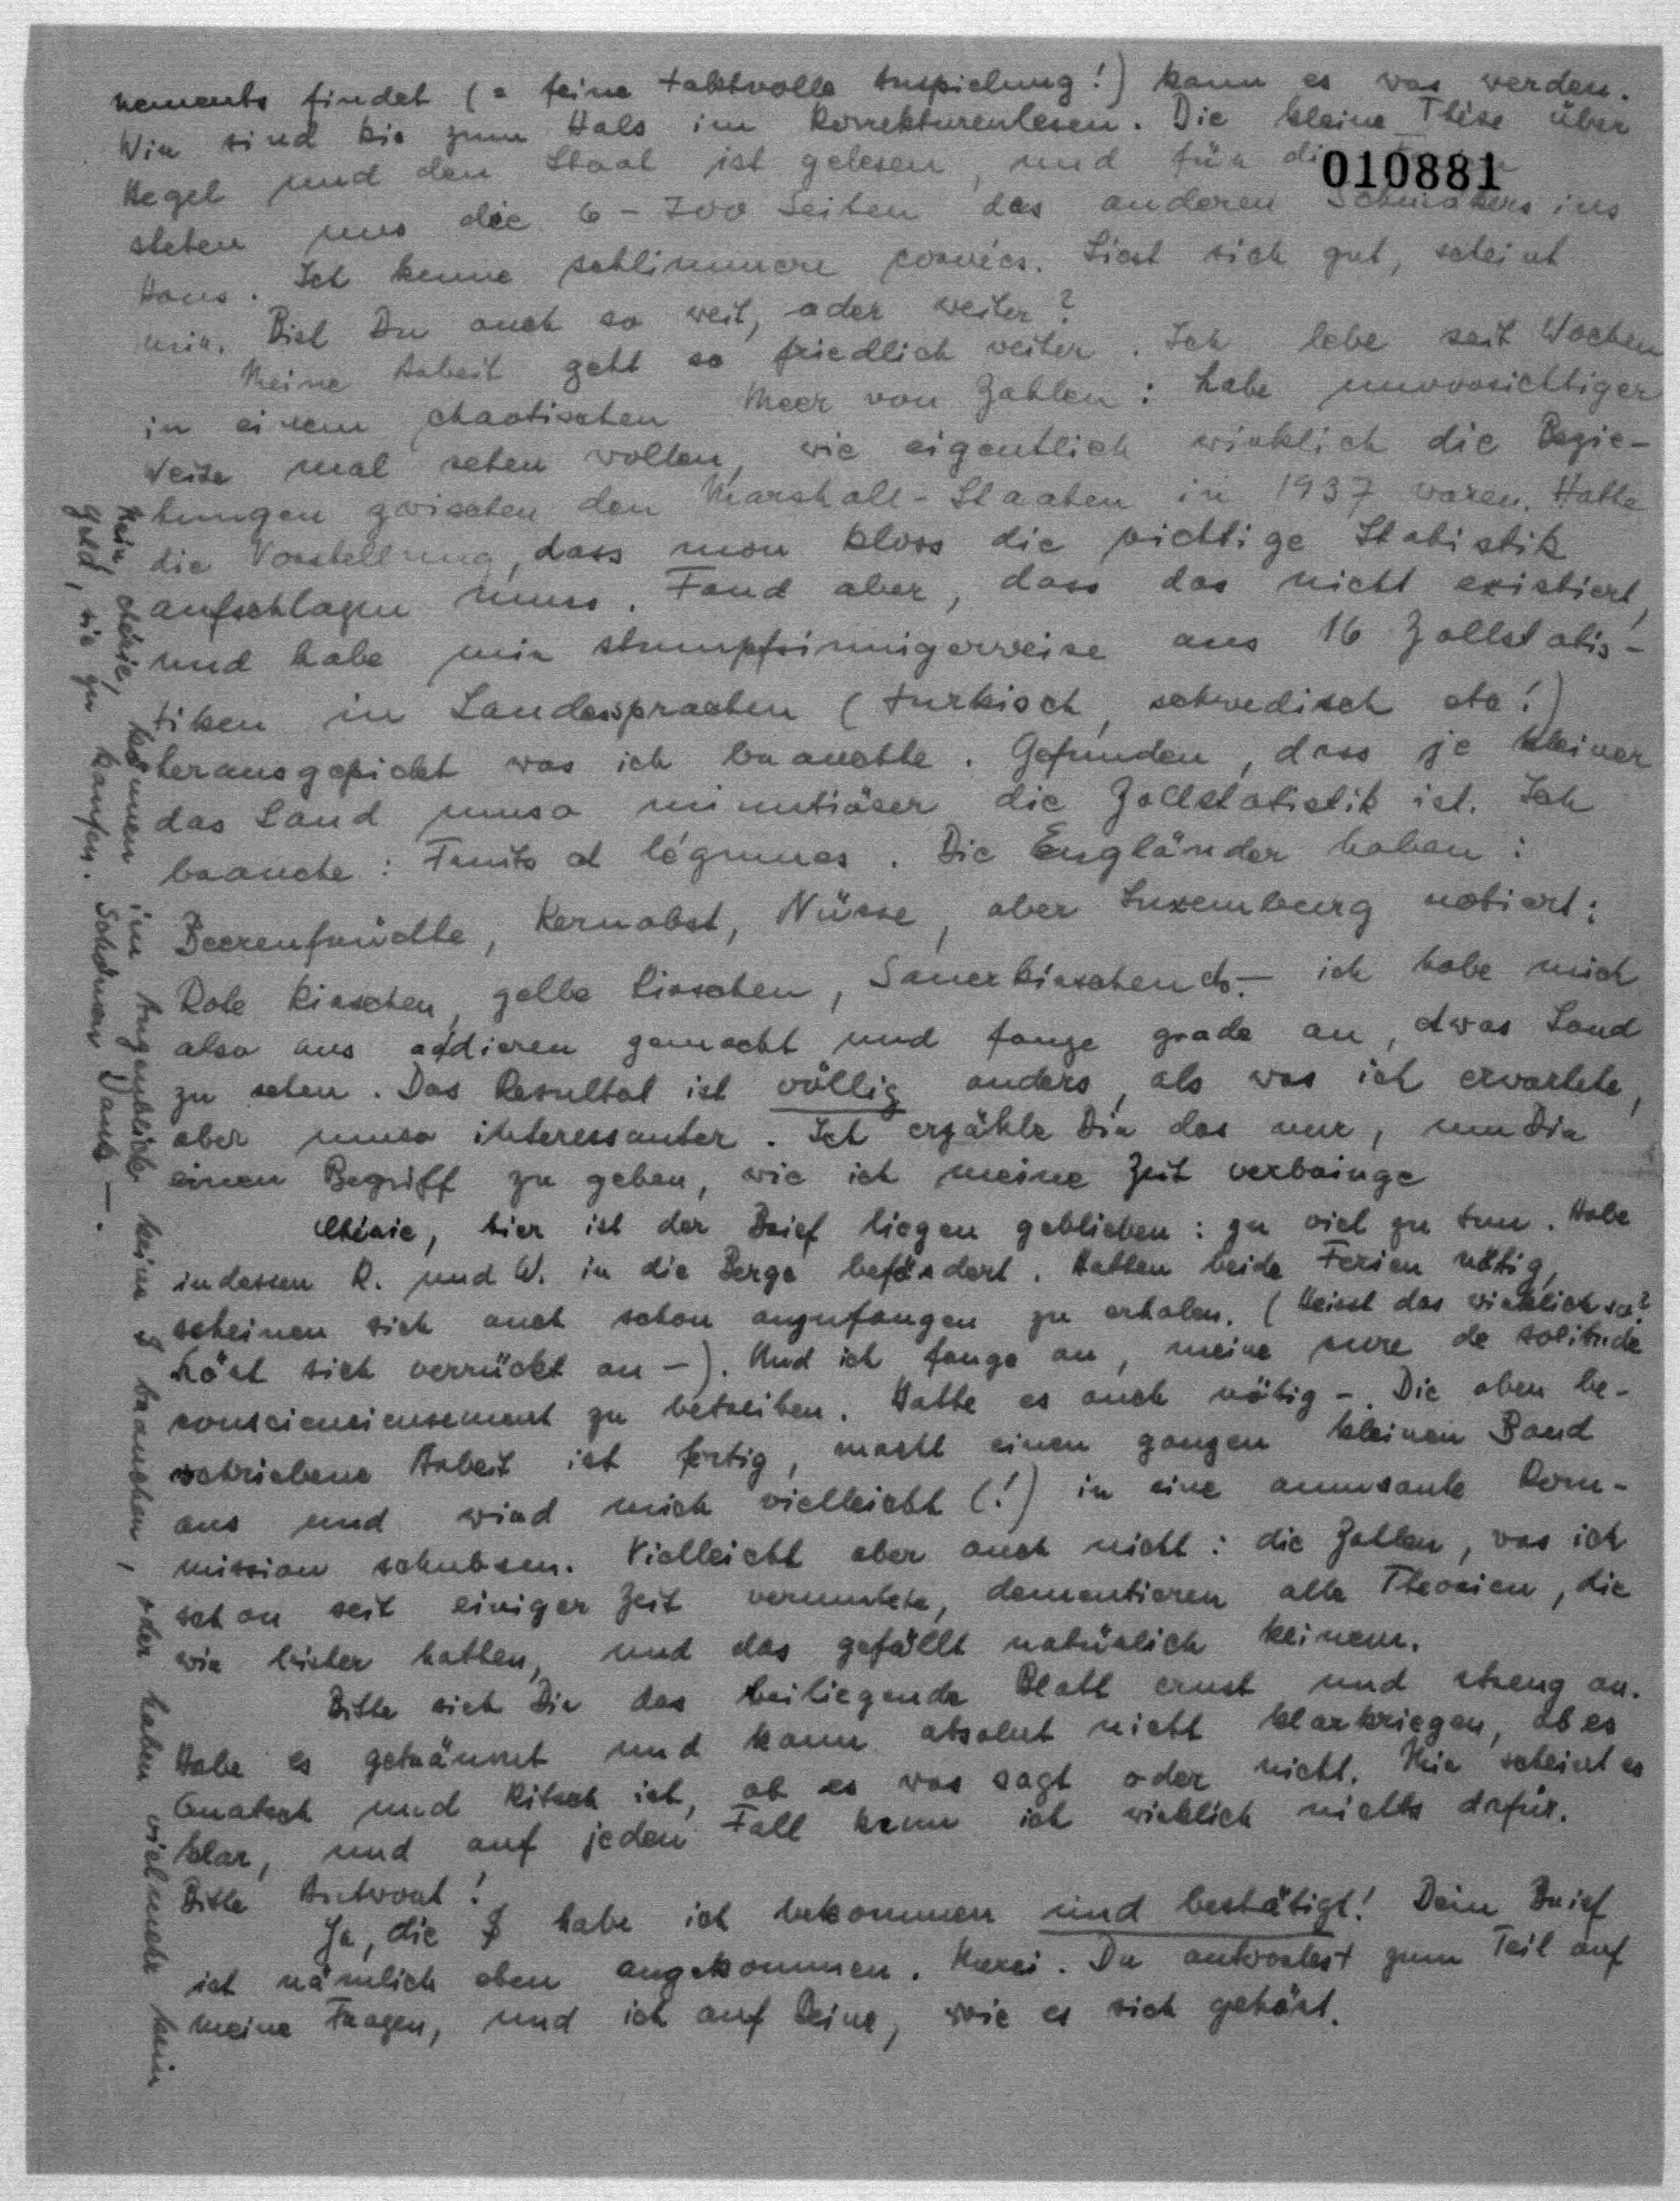 nements findet (= feine taktvolle Anspielung!) kann es was werden.
Wir sind bis zum Hals im Korrekturenlesen. Die kleine Thèse über
Hegel und den Staat ist gelesen, und für die
010881
stehen uns die 6-700 Seiten des anderen Schmökers ins
Haus. Ich kenne schlimmere corvées. Liest sich gut, scheint
mir. Bist Du auch so weit, oder weiter?
Meine Arbeit geht so friedlich weiter. Ich lebe seit Wochen
in einem chaotischen Meer von Zahlen: habe unvorsichtiger
Weise mal sehen wollen, wie eigentlich wirklich die Bezie-
hungen zwischen den Marshall-Staaten in 1937 waren. Hatte
die Vorstellung, dass man bloss die richtige Statistik
aufschlagen muss. Fand aber, dass das nicht existiert,
und habe mir stumpfsinnigerweise aus 16 Zollstatis-
tiken in Landessprachen (turkisch, schwedisch etc!)
herausgepickt was ich brauchte. Gefunden, dass je kleiner
das Land umso minutiöser die Zollstatistik ist. Ich
brauche: Fruits et légumes. Die Engländer haben:
Beerenfrüchte, Kernobst, Nüsse, aber Luxemburg notiert:
Rote Kirschen, gelbe Kirschen, Sauerkirschen etc. - ich habe mich
also ans addieren gemacht und fange grade an, etwas Land
zu sehen. Das Resultat ist völlig anders, als was ich erwartete,
aber umso interessanter. Ich erzähle Dir das nur, um Dir
einen Begriff zu geben, wie ich meine Zeit verbringe
Chérie, hier ist der Brief liegen geblieben: zu viel zu tun. Habe
indessen R. und W. in die Berge befördert. Hatten beide Ferien nötig,
scheinen sich auch schon anzufangen zu erholen. (Heisst das wirklich so?
hört sich verrückt an -). Und ich fange an, meine cure de solitude
consciencieusement zu betreiben. Hatte es auch nötig -. Die oben be-
schriebene Arbeit ist fertig, macht einen ganzen kleinen Band
aus und wird mich vielleicht (!) in eine amusante Kom-
mission schubsen. Vielleicht aber auch nicht: die Zahlen, was ich
schon seit einiger Zeit vermutete, dementieren alle Theorien, die
wir bisher hatten, und das gefällt natürlich keinem.
Bitte sieh Dir das beiliegende Blatt ernst und streng an.
Habe es geträumt und kann absolut nicht klarkriegen, ob es
Quatsch und Kitsch ist, ob es was sagt oder nicht. Mir scheint es
klar, und auf jeden Fall kann ich wirklich nichts dafür.
Bitte Antwort!
Ja, die $ habe ich bekommen und bestätigt! Dein Brief
ist nämlich eben angekommen. Merci. Du antwortest zum Teil auf
meine Fragen, und ich auf Deine, wie es sich gehört.
Nein, chérie, können im Augenblick keine $ brauchen, oder haben vielmehr kein
Geld, sie zu kaufen. Schönen Dank -.